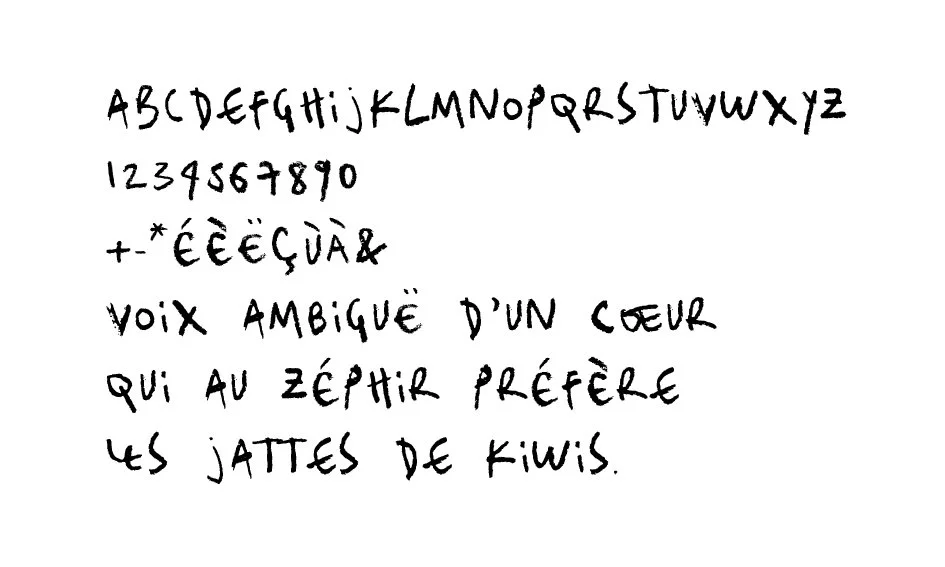 ABCDEFGHijKLMNOPQRSTUVWXYZ
1234567890
+-*ÉÈËÇÙÀ&
VOiX AMBiGUË D'UN CŒUR
QUi AU ZÉPHiR PRÉFÈRE
LES jATTES DE KiWiS.